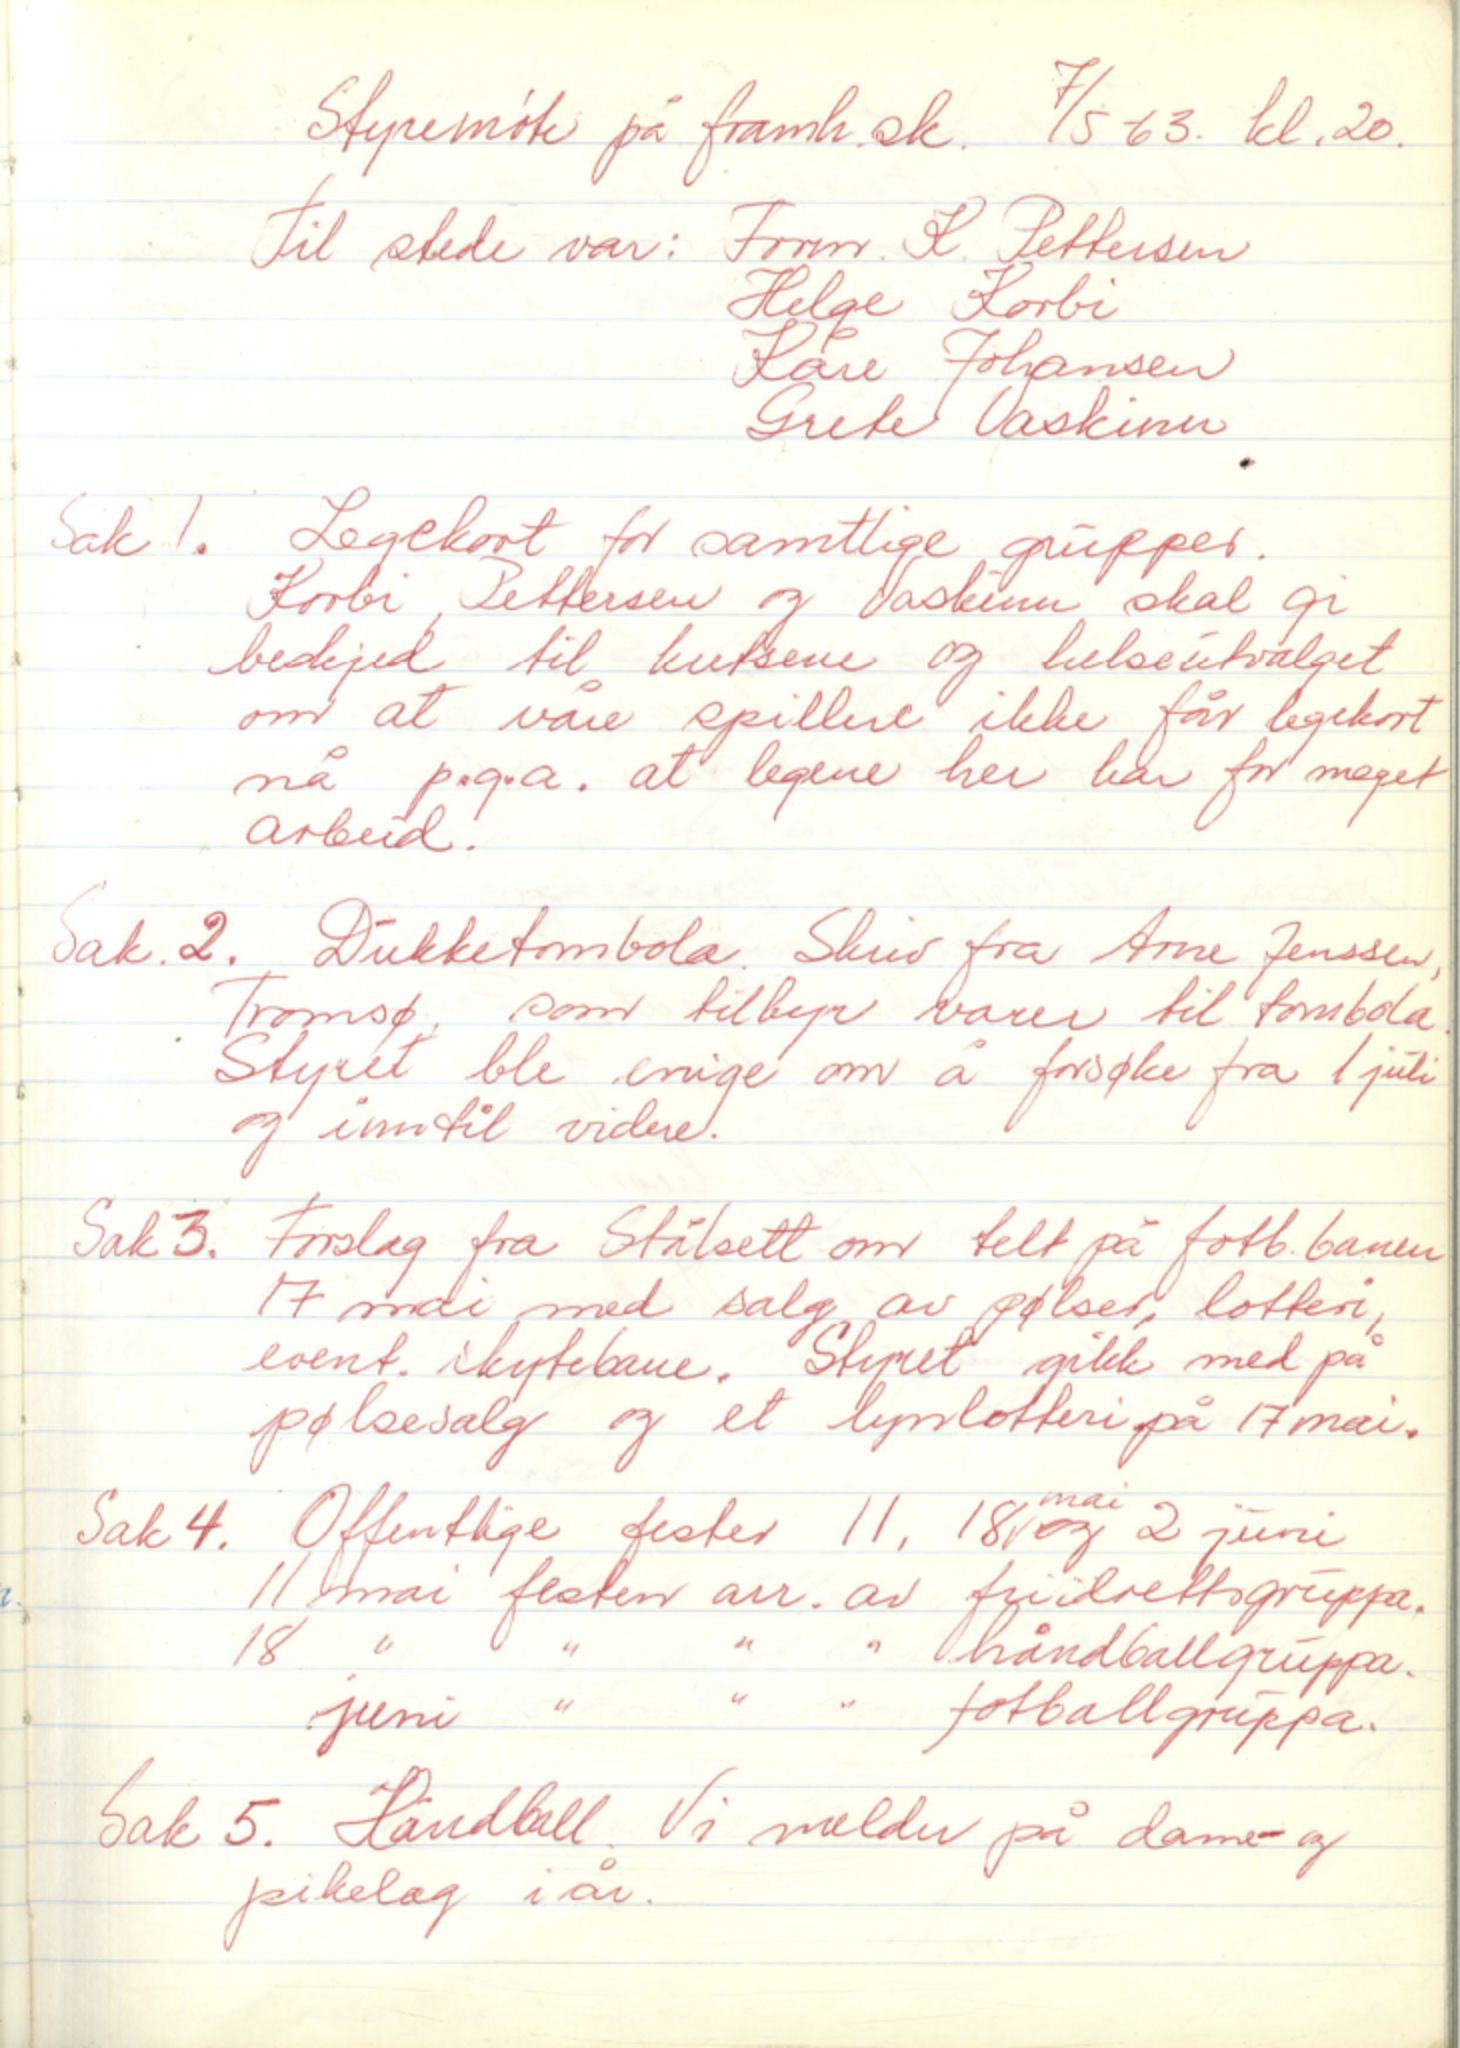 Styremöte på framh. sk. 7/5-63. kl. 20.
Til stede var: Form. K. Pettersen
Helge Korbi
Kåre Johansen
Grete Vaskinn
Sak 1. Legekort for samtlige grupper.
Korbi, Pettersen og Vaskinn skal gi
beskjed til kretsene og helseutvalget
om at våre spillere ikke får legekort
nå p.g.a. at legene her har for meget
arbeid.
Sak. 2. Dukketombola. Skriv fra Arne Jenssen,
Tromsø, som tilbyr varer til tombola.
Styret ble enige om å forsøke fra 1 juli
og inntil videre.
Sak 3. Forslag fra Stålsett om telt på fotb. banen
17 mai med salg av pølser, lotteri,
event. skytebane. Styret gikk med på
pølsesalg og et lynlotteri på 17 mai.
Sak 4. Offentlige fester 11, 18 mai og 2 juni
11 mai festen arr. av friidrettsgruppa.
18 " " " " håndballgruppa.
juni " " " fotballgruppa.
Sak 5. Håndball. Vi melder på dame- og
pikelag i år.